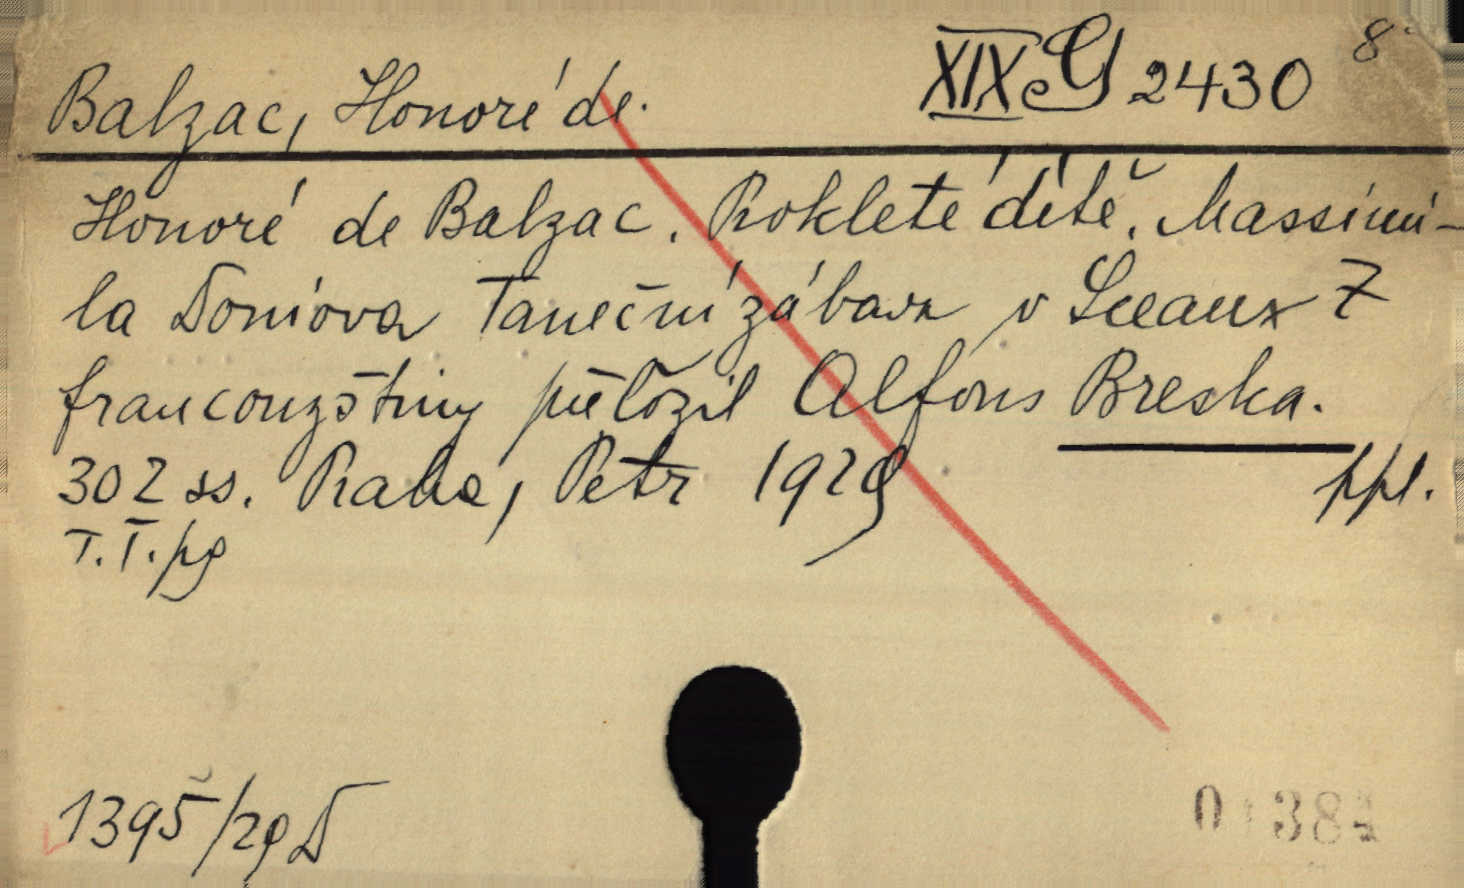 XIX e G 2430 8°
Balzac, Honoré de.
Honoré de Balzac. Prokleté dítě. Massimi-
la Doniova Taneční zábava v Sceaux Z
francouzštiny přeložil Alfons Breska.
302 ss. Praha, Petr 1929 ppl.
T. T. pg
1395/29 D